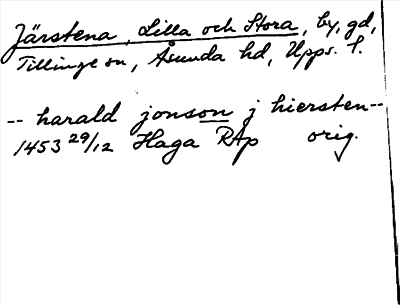 Järstena, Lilla och Stora, by, gd,
Tillinge sn, Åsunda hd, Upps. l.
-- harald jonson j hiersten --
1453 29/12 Haga RAp orig.